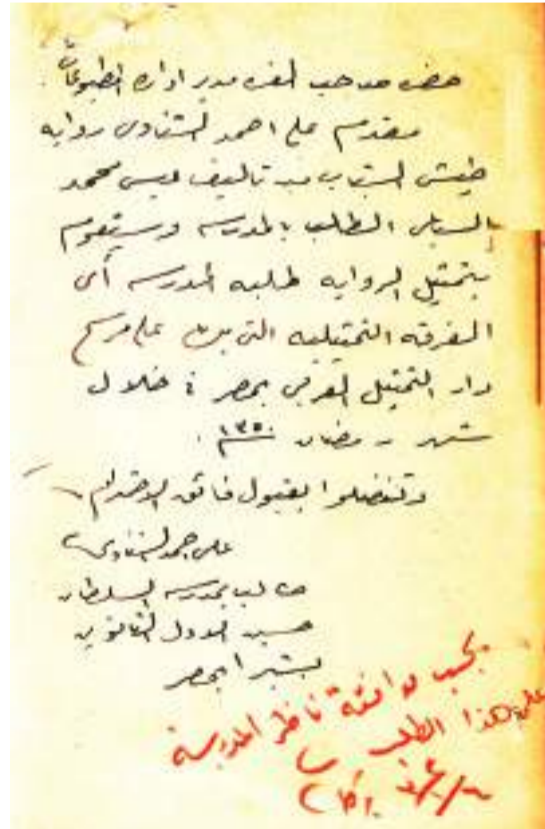 حضرة صاحب العزة مدير ادارة المطبوعات
مقدم علي احمد الشناوى رواية
طيش الشباب من تأليف محمد
الطالب بالمدرسة وستقوم
بتمثيل الرواية طلبة المدرسة أى
الفرقة التمثيلية التى على مسرح
دار التمثيل العربى بمصر فى خلال
شهر رمضان ١٣٥٠
وتفضلوا بقبول فائق الاحترام
على احمد الشناوى
طالب بمدرسة السلطان
حسين الاول الثانوية
بشبرا بمصر
يجب موافقة ناظر المدرسة
على هذا الطلب